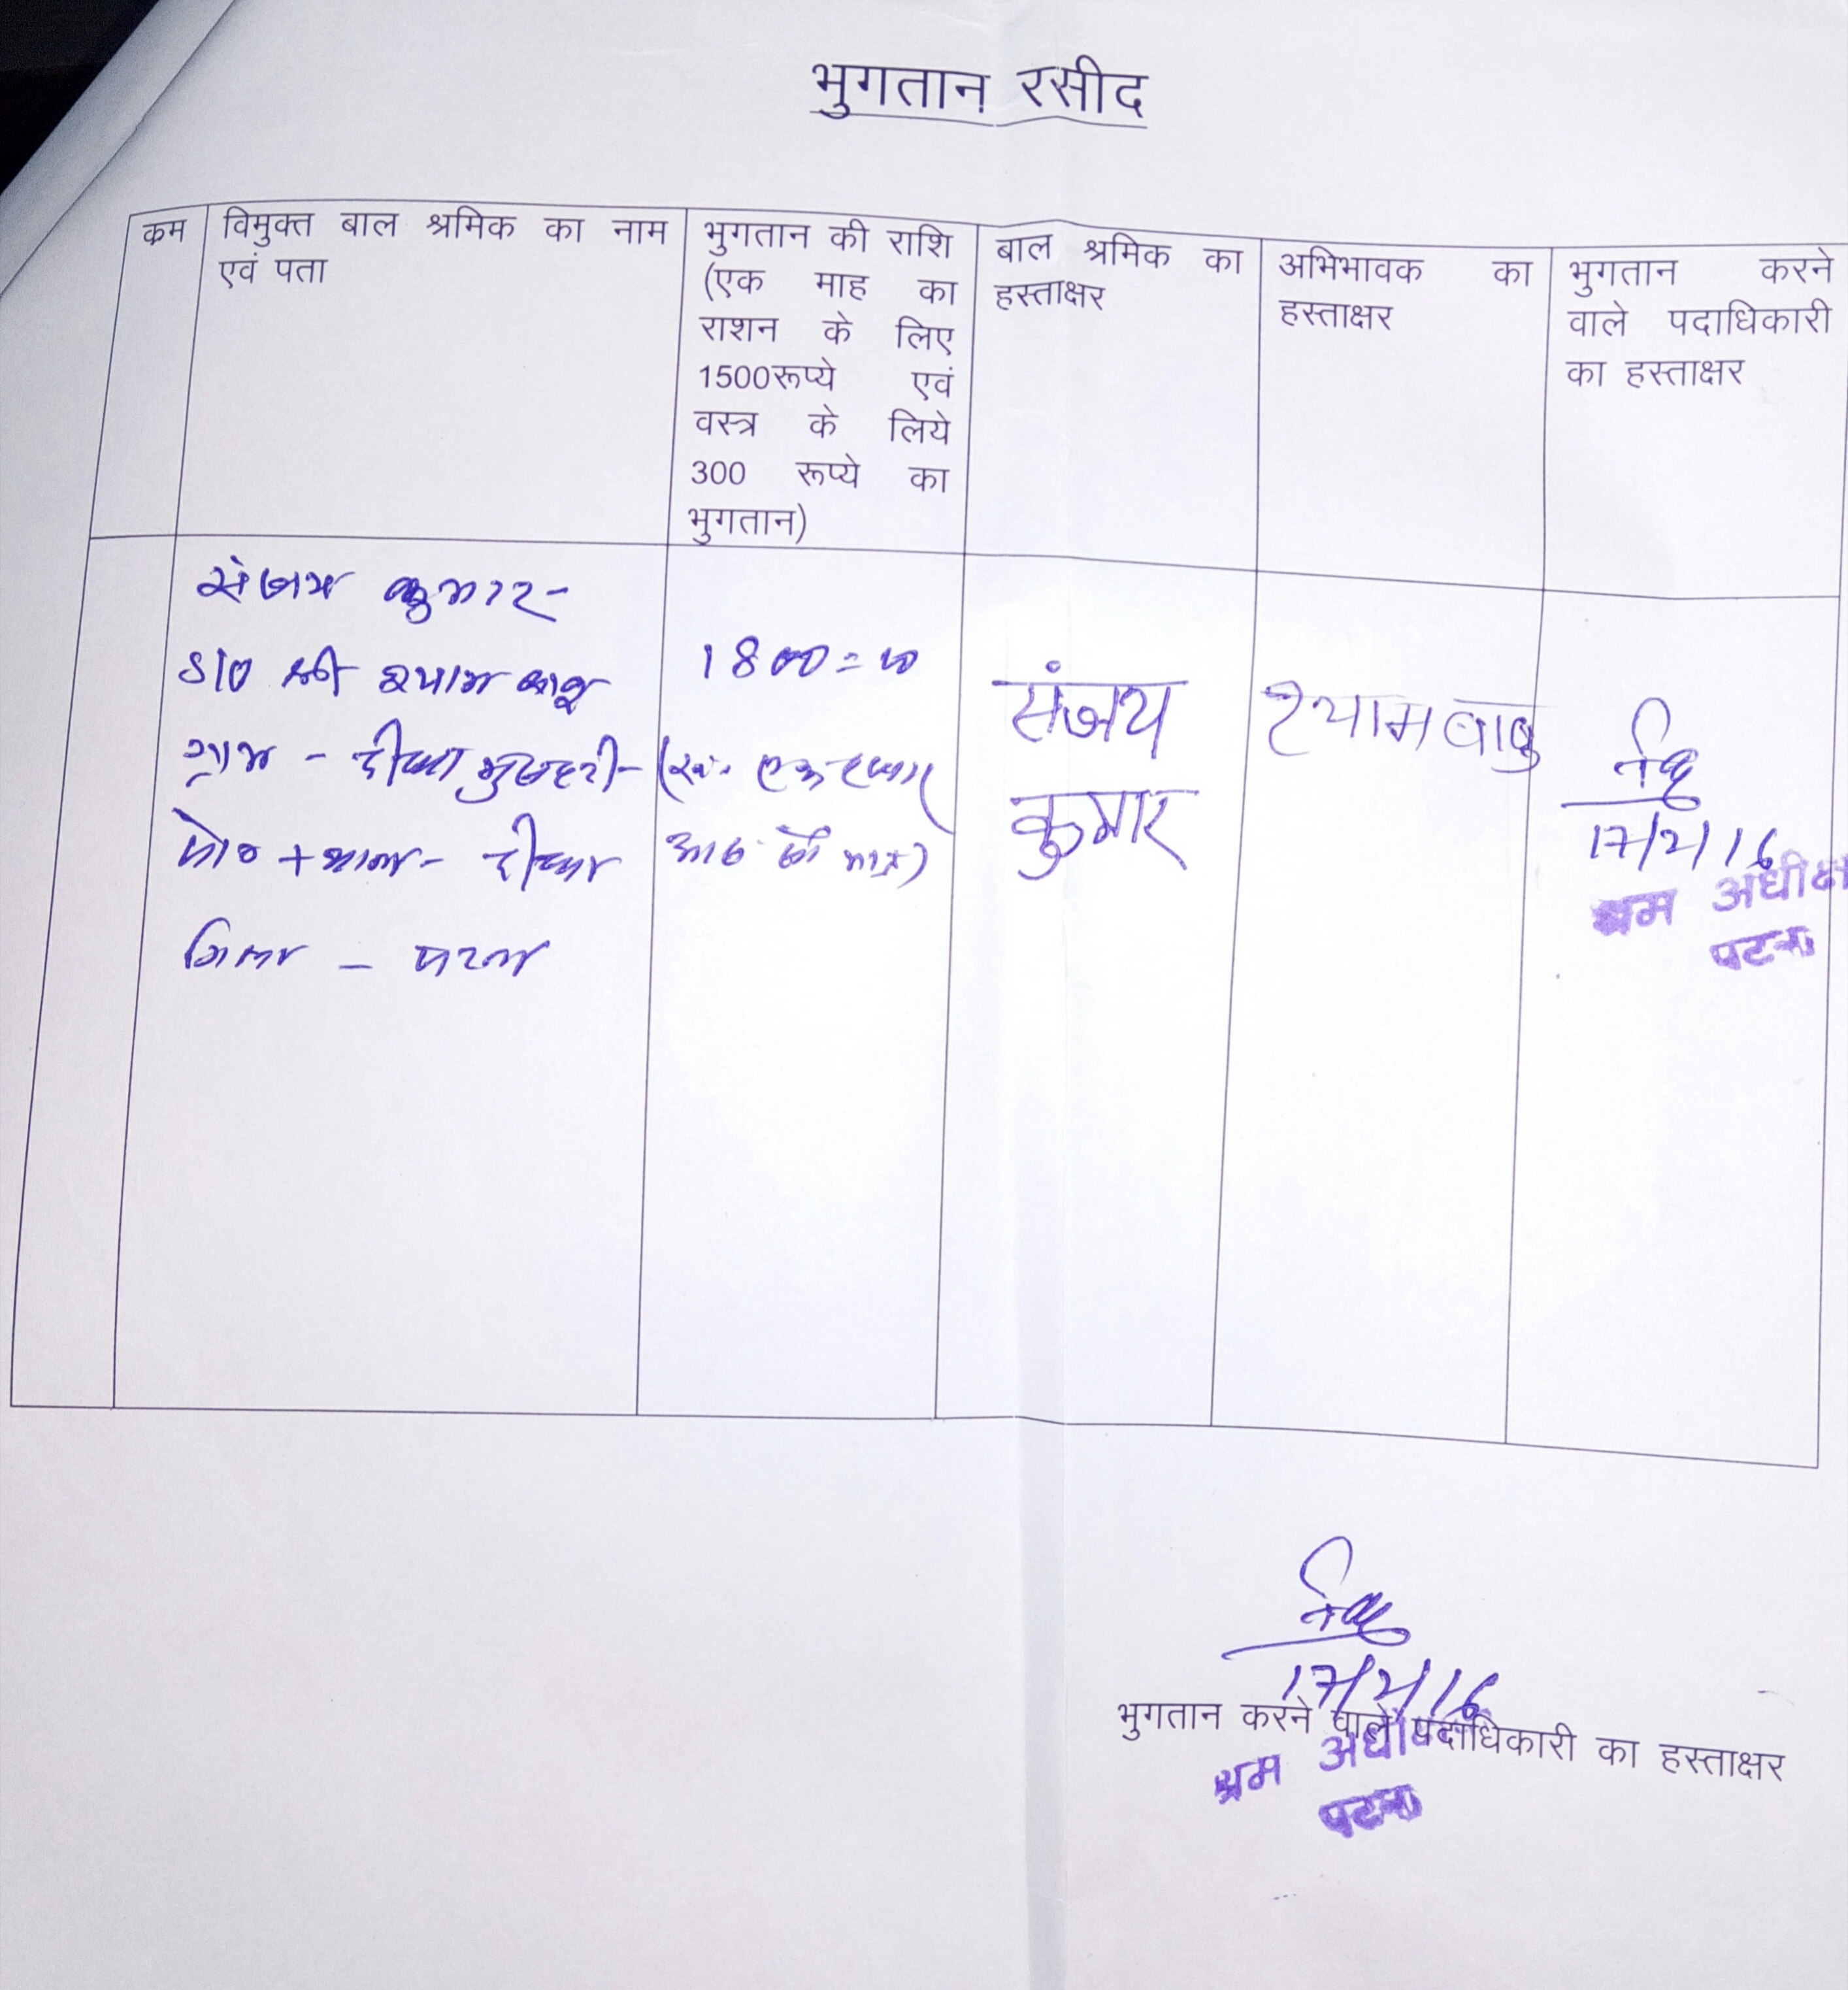 भुगतान रसीद
कम
विमुक्त बाल श्रमिक का नाम
एवं पता
भुगतान की राशि
(एक माह का
राशन के लिए
1500रूप्ये एवं
वस्त्र के लिये
300 रूप्ये का
भुगतान)
बाल श्रमिक का
हस्ताक्षर
अभिभावक का
हस्ताक्षर
भुगतान करने
वाले पदाधिकारी
का हस्ताक्षर
संजय कुमार-
S/O श्री श्याम बाबू
ग्राम - दीघा मुसहरी-
पो० + थाना- दीघा
जिला - पटना
1800=00
(रू. एक हजार
आठ सौ मात्र)
संजय
कुमार
श्यामबाबु
17/2/16
श्रम अधीक्ष
पटना
17/2/16
भुगतान करने वाले पदाधिकारी का हस्ताक्षर
श्रम
पटना